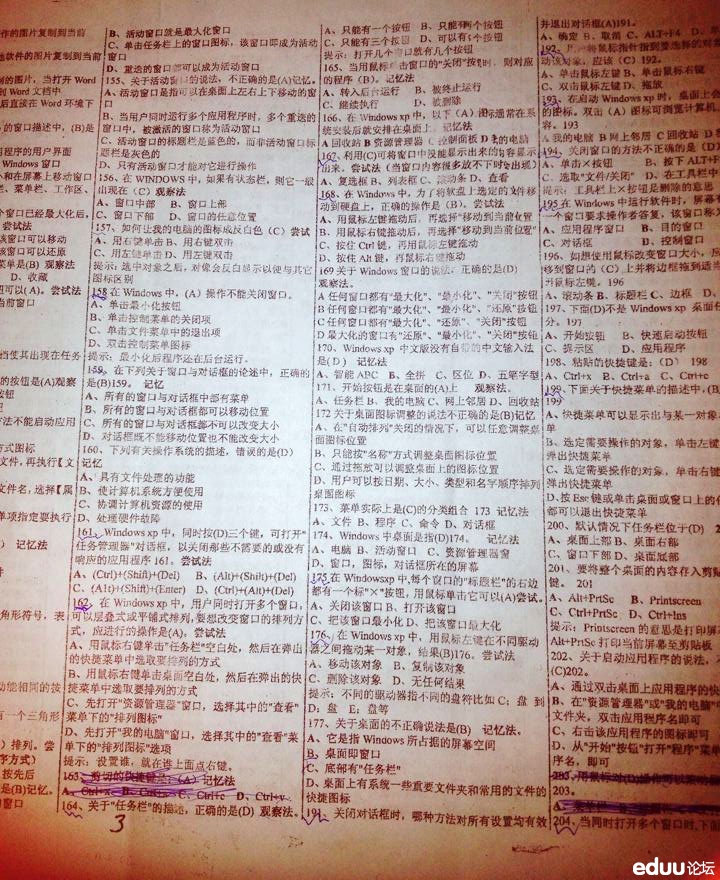 作的图片,当打开 Word
到 Word 文档中
后直接在 Word 环境下
的窗口描述中,(B)是
用程序的用户界面
Windows 窗口
和在屏幕上移动窗口
栏、菜单栏、工作区、
尝试法
该窗口可以移动
该窗口可以还原
菜单是(B) 观察法
D、收藏
可以(A)。尝试法
当前窗口
B、活动窗口就是最大化窗口
C、单击任务栏上的窗口图标,该窗口即成为活动
窗口
D、重迭的窗口都可以成为活动窗口
155、关于活动窗口的说法,不正确的是(A)记忆。
A、活动窗口是指可以在桌面上左右上下移动的窗
口
B、当用户同时运行多个应用程序时,多个重迭的
窗口中,被激活的窗口称为活动窗口
C、活动窗口的标题栏是蓝色的,而非活动窗口标
题栏是灰色的
D、只有活动窗口才能对它进行操作
156、在 WINDOWS 中,如果有状态栏,则它一般
出现在(C)观察法
A、窗口中部 B、窗口上部
C、窗口下部 D、窗口的任意位置
157、如何让我的电脑的图标成反白色(C)尝试
A、用右键单击 B、用右键双击
C、用左键单击 D、用左键双击
提示:选中对象之后,对像会反白显示以便与其它
图标区别
158 在 Windows 中,(A)操作不能关闭窗口。
A、单击最小化按钮
B、单击控制菜单的关闭项
C、单击文件菜单中的退出项
D、双击控制菜单图标
提示:最小化后程序还在后台运行。
159、在下列关于窗口与对话框的论述中,正确的
是(B)159。 记忆
A、所有的窗口与对话框中部有菜单
B、所有的窗口与对话框都可以移动位置
C、所有的窗口与对话框都不可以改变大小
D、对话框既不能移动位置也不能改变大小
160、下列有关操作系统的描述,错误的是(D)
记忆法
A、具有文件处理的功能
B、使计算机系统方便使用
C、协调计算机资源的使用
D、处理硬件故障
161、Windows xp 中,同时按(D)三个键,可打开"
任务管理器"对话框,以关闭那些不需要的或没有
响应的应用程序 161。尝试法
A、(Ctrl)+(Shift)+(Del) B、(Alt)+(Shilt)+(Del)
C、(Alt)+(Shift)+(Enter) D、(Ctrl)+(Alt)+(Del)
162、在 Windows xp 中,用户同时打开多个窗口,
可以层叠式或平铺式排列,要想改变窗口的排列方
式,应进行的操作是(A):尝试法
A、用鼠标右键单击"任务栏"空白处,然后在弹出
的快捷菜单中选取要排列的方式
B、用鼠标右键单击桌面空白处,然后在弹出的快
捷菜单中选取要排列的方式
C、先打开"资源管理器"窗口,选择其中的"查看"
菜单下的"排列图标"
D、先打开"我的电脑"窗口,选择其中的"查看"菜
单下的"排列图标"选项
提示:设置谁,就在谁上面点右键。
163、剪切的快捷键是:(A)记忆法
A、Ctrl+x B、Ctrl+s C、Ctrl+c D、Ctrl+v
164、关于"任务栏"的描述,正确的是(D)观察法。
3
A、只能有一个按钮 B、只能两个按钮
C、只能有三个按钮 D、可以有多个按钮
提示:打开几个窗口就有几个按钮
165、当用鼠标单击窗口的"关闭"按钮时,则对应
的程序(B)。记忆法
A、转入后台运行 B、被终止运行
C、继续执行 D、被删除
166、在 Windows xp 中,以下(A)图标通常在系
统安装后就安排在桌面上。记忆法
A 回收站 B 资源管理器 C 控制面板 D 我的电脑
167、利用(C)可将窗口中没能显示出来的内容显示
出来。尝试法(当窗口内容很多放不下时会出现)
A、复选框 B、列表框 C、滚动条 D、查看
168、在 Windows 中,为了将软盘上选定的文件移
动到硬盘上,正确的操作是(B)。尝试法
A、用鼠标左键拖动后,再选择"移动到当前位置"
B、用鼠标右键拖动后,再选择"移动到当前位置"
C、按住 Ctrl 键,再用鼠标左键拖动
D、按住 Alt 键,再鼠标右键拖动
169 关于 Windows 窗口的说法,正确的是(D)
观察法。
A 任何窗口都有"最大化"、"最小化"、"关闭"按钮
B 任何窗口都有"最大化"、"最小化"、"还原"按钮
C 任何窗口都有"最大化"、"还原"、"关闭"按钮
D 最大化的窗口有"还原"、"最小化"、"关闭"按钮
170、Windows xp 中文版没有自带的中文输入法
是(D) 记忆法
A、智能 ABC B、全拼 C、区位 D、五笔字型
171、开始按钮是在桌面的(A)上 观察法。
A、任务栏 B、我的电脑 C、网上邻居 D、回收站
172 关于桌面图标调整的说法不正确的是(B)记忆
A、在"自动排列"关闭的情况下,可以任意调整桌
面图标位置
B、只能按"名称"方式调整桌面图标位置
C、通过拖放可以调整桌面上的图标位置
D、用户可以按日期、大小、类型和名字顺序排列
桌面图标
173、菜单实际上是(C)的分类组合 173 记忆法
A、文件 B、程序 C、命令 D、对话框
174、Windows 中桌面是指(D)174。 记忆法
A、电脑 B、活动窗口 C、资源管理器窗
D、窗口,图标,对话框所在的屏幕
175 在 Windowsxp 中,每个窗口的"标题栏"的右边
都有一个标"×"按钮,用鼠标单击它可以(A)尝试。
A、关闭该窗口 B、打开该窗口
C、把该窗口最小化 D、把该窗口最大化
176、在 Windows xp 中,用鼠标左键在不同驱动
器之间拖动某一对象,结果(B)176。尝试法
A、移动该对象 B、复制该对象
C、删除该对象 D、无任何结果
提示:不同的驱动器指不同的盘符比如 C;盘 到
D;盘 E;盘等
177、关于桌面的不正确说法是(B) 记忆法。
A、它是指 Windows 所占据的屏幕空间
B、桌面即窗口
C、底部有"任务栏"
D、桌面上有系统一些重要文件夹和常用的文件的
快捷图标
191、关闭对话框时,哪种方法对所有设置均有效
并退出对话框(A)191。
A、确定 B、取消 C、ALT+F4
动该对象,应该(C)192。
A、单击鼠标左键 B、单击鼠标右键
C、双击鼠标左键 D、拖放
193、在启动 Windows xp 时,桌面会
的图标。双击(A)图标可浏览计算机
容。193
A 我的电脑 B 网上邻居 C 回收站 D
194、关闭窗口的方法不正确的是(D)
A、单击×按钮 B、按下 ALT+F
C、选取"文件/关闭" D、在工具栏中
提示:工具栏上×按钮是删除的意思
195 在 Windows 中运行软件时,屏幕
一个窗口要求操作者答复,该窗口称
A、应用程序窗口 B、目的窗口
C、对话框 D、控制窗口
196、如想使用鼠标改变窗口大小,应
移到窗口的(C)上并将边框拖到适当
开鼠标左键。196
A、滚动条 B、标题栏 C、边框 D、
197、下面(D)不是 Windows 桌面任
分。197
A、开始按钮 B、快速启动按钮
C、提示区 D、应用程序
198、粘贴的快捷键是:(D) 198
A、Ctrl+x B、Ctrl+a C、Ctrl+c
199、下面关于快捷菜单的描述中,(B)
199
A、快捷菜单可以显示出与某一对象
单
B、选定需要操作的对象,单击左键
弹出快捷菜单
C、选定需要操作的对象,单击右键
弹出快捷菜单
D、按 Esc 键或单击桌面或窗口上的
都可以退出快捷菜单
200、默认情况下任务栏位于(D)
A、桌面上部 B、桌面右部
C、窗口下部 D、桌面底部
201、要将整个桌面的内容存入剪贴
键。 201
A、Alt+PrtSc B、Printscreen
C、Ctrl+PrtSc D、Ctrl+Ins
提示:Printscreen 的意思是打印屏
Alt+PrtSc 打印当前屏幕至剪贴板
202、关于启动应用程序的说法,
(C)202。
A、通过双击桌面上应用程序的快
B、在"资源管理器"或"我的电脑"
文件夹,双击应用程序名即可
C、右击该应用程序的图标即可
D、从"开始"按钮"打开"程序"菜单
序名,即可
203。
204、当同时打开多个窗口时,下面
eduu论坛